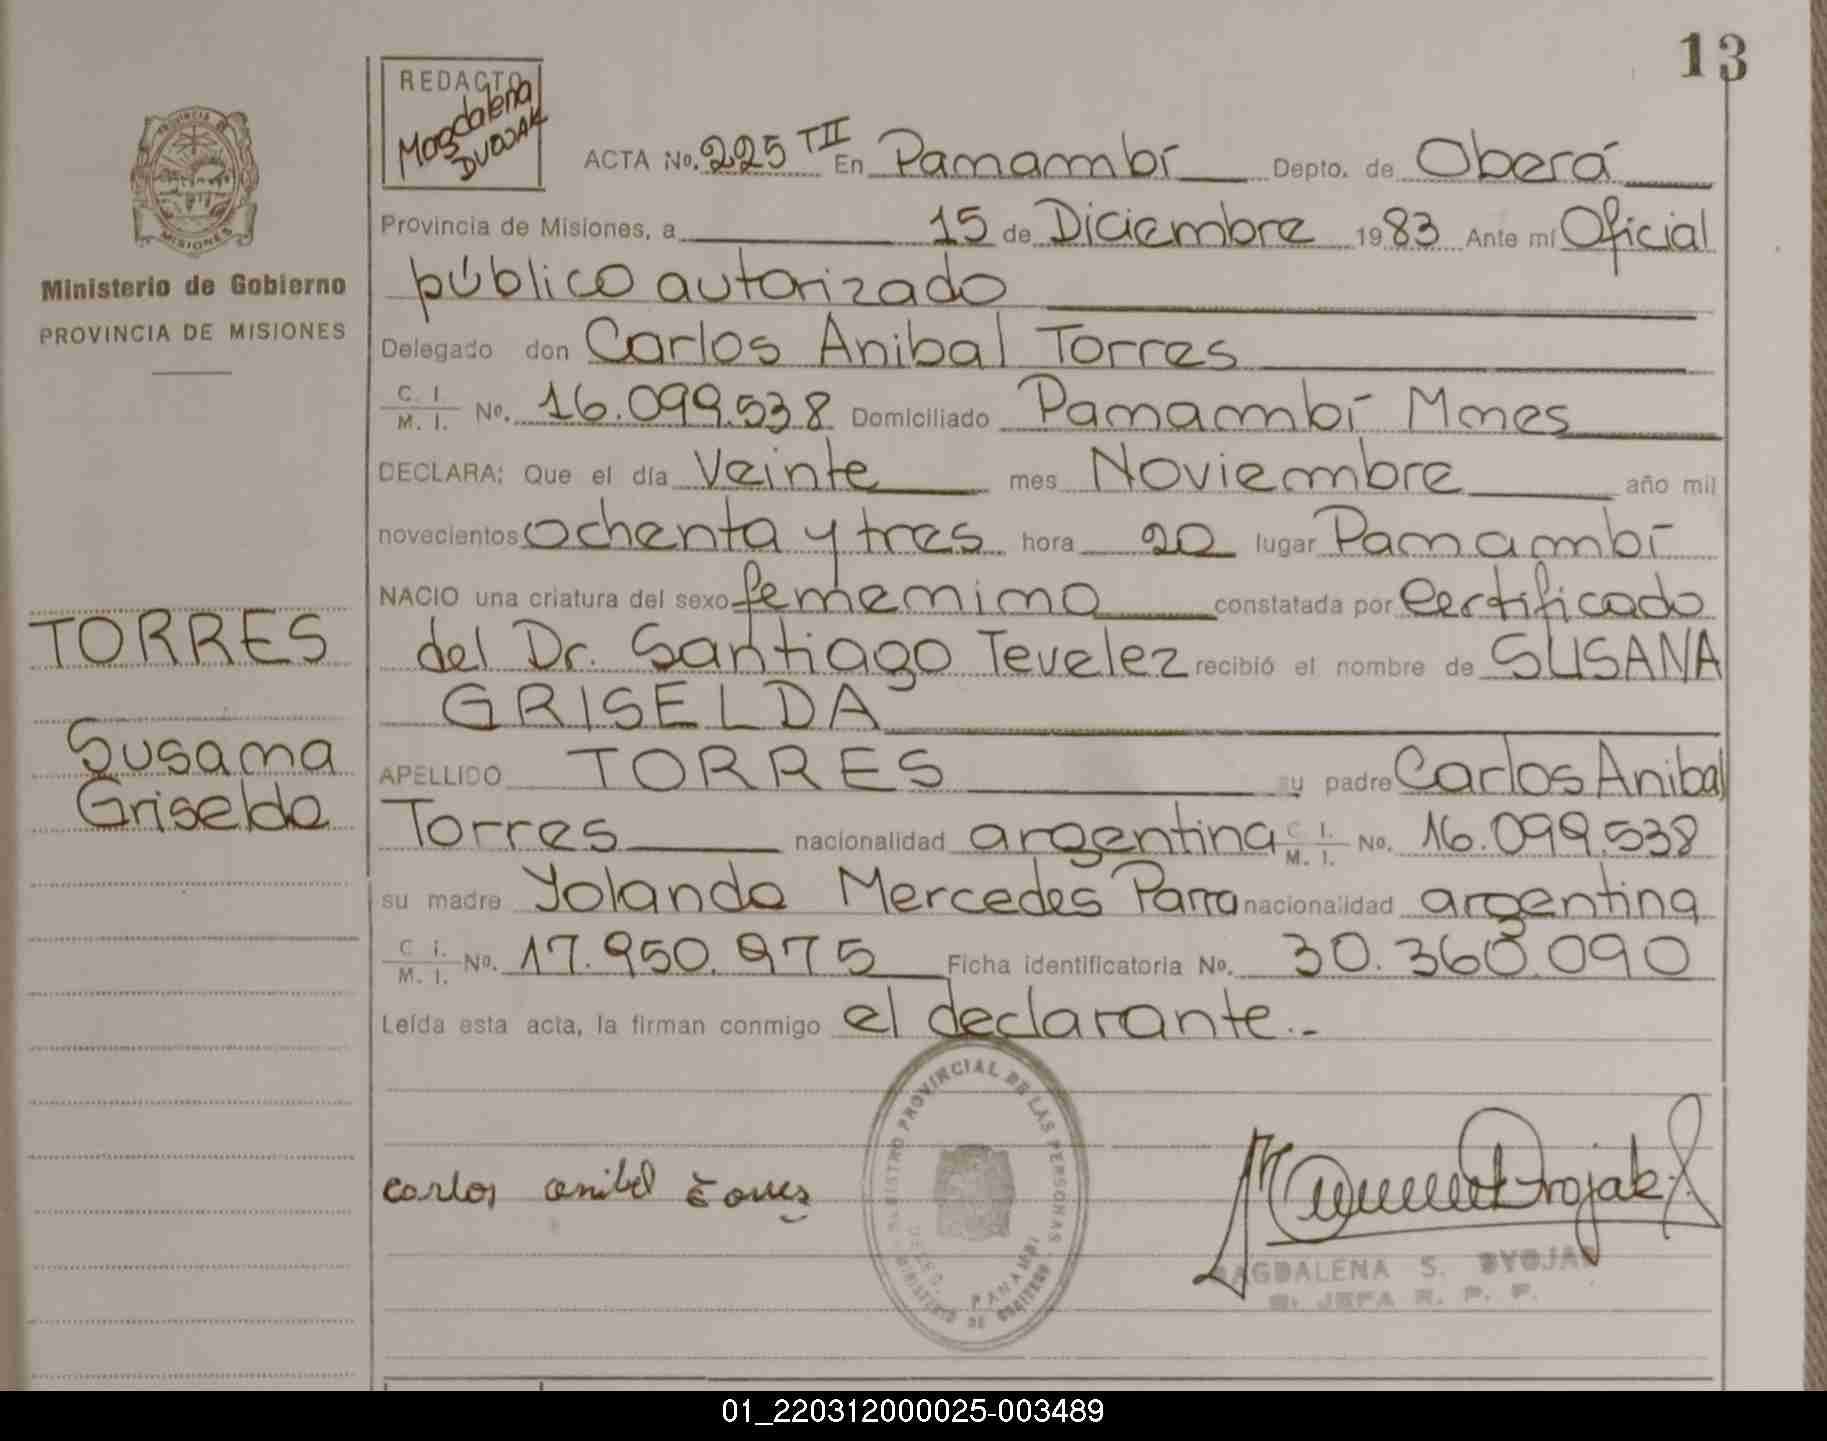 13
PROVINCIA DE
MISIONES
Ministerio de Gobierno
PROVINCIA DE MISIONES
TORRES
Susana
Griselda
REDACTO
Magdalena
DVOJAK
ACTA No. 225 TII En Panambí Depto. de Oberá
Provincia de Misiones, a 15 de Diciembre 1983 Ante mí Oficial
público autorizado
Delegado don Carlos Anibal Torres
C. I.
M. I. No. 16.099.538 Domiciliado Panambí Mnes
DECLARA: Que el día Veinte mes Noviembre año mil
novecientos ochenta y tres hora 20 lugar Panambí
NACIO una criatura del sexo femenino constatada por Certificado
del Dr. Santiago Tevelez recibió el nombre de SUSANA
GRISELDA
APELLIDO TORRES su padre Carlos Anibal
Torres nacionalidad argentina C. I. M. I. No. 16.099.538
su madre Yolanda Mercedes Parra nacionalidad argentina
C. I.
M. I. No. 17.950.975 Ficha identificatoria No. 30.360.090
Leída esta acta, la firman conmigo el declarante.-
REGISTRO PROVINCIAL DE LAS PERSONAS
DELEG. PANAMBI
MINISTERIO DE GOBIERNO
carlos anibal torres
MAGDALENA S. DVOJAK
JEFA R. P. P.
01_220312000025-003489